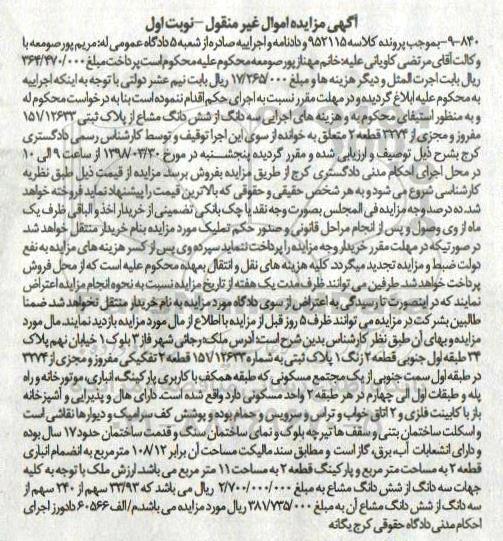 آگهی مزایده اموال غیر منقول – نوبت اول
۹-۸۴۰- بموجب پرونده کلاسه ۹۵۲۱۱۵ و دادنامه و اجراییه صادره از شعبه ۵ دادگاه عمومی له: مریم پور صومعه با
وکالت آقای مرتضی کاویانی علیه: خانم مهناز پور صومعه محکوم علیه محکوم است پرداخت مبلغ ۳۶۴/۴۷۰/۰۰۰
ریال بابت اجرت المثل و دیگر هزینه ها و مبلغ ۱۷/۲۶۵/۰۰۰ ریال بابت نیم عشر دولتی با توجه به اینکه اجراییه
به محکوم علیه ابلاغ گردیده و در مهلت مقرر نسبت به اجرای حکم اقدام ننموده است بنا به درخواست محکوم له
و به منظور استیفای محکوم به و هزینه های اجرایی سه دانگ از شش دانگ مشاع از پلاک ثبتی ۱۵۱/۱۲۶۳۳
مفروز و مجزی از ۳۲۷۴ قطعه ۲ متعلق به خوانده از سوی این اجرا توقیف و توسط کارشناس رسمی دادگستری
کرج بشرح ذیل توصیف و ارزیابی شده و مقرر گردیده پنجشنبه در مورخ ۱۳۹۸/۰۳/۳۰ از ساعت ۹ الی ۱۰
در محل اجرای احکام مدنی دادگستری کرج از طریق مزایده بفروش برسد. مزایده از قیمت ذیل طبق نظریه
کارشناسی شروع می شود و به هر شخص حقیقی و حقوقی که بالاترین قیمت را پیشنهاد نماید فروخته خواهد
شد. ده درصد وجه مزایده فی المجلس بصورت وجه نقد یا چک بانکی تضمینی از خریدار اخذ و الباقی ظرف یک
ماه از وی وصول و پس از انجام مراحل قانونی و صدور حکم تملیک مورد مزایده بنام خریدار منتقل خواهد شد
در صورتیکه در مهلت مقرر خریدار وجه مزایده را پرداخت ننماید سپرده وی پس از کسر هزینه های مزایده به نفع
دولت ضبط و مزایده تجدید میگردد. کلیه هزینه های نقل و انتقال بعهده محکوم علیه است که از محل فروش
پرداخت خواهد شد. طرفین می توانند ظرف مدت یک هفته از تاریخ مزایده نسبت به نحوه انجام مزایده اعتراض
نمایند که در اینصورت تا رسیدگی به اعتراض از سوی دادگاه مورد مزایده به نام خریدار منتقل نخواهد شد. ضمنا
طالبین بشرکت در مزایده می توانند ظرف ۵ روز قبل از مزایده با اطلاع از مال مورد مزایده بازدید نمایند. مال مورد
مزایده و بهای آن طبق نظر کارشناس بدین شرح است: آدرس ملک: رجائی شهر فاز ۳ بلوک ۱ خیابان نهم پلاک
۳۴ طبقه اول جنوبی قطعه ۲ زنگ ۱ پلاک ثبتی به شماره ۱۵۱/۱۲۶۳۳ قطعه ۲ تفکیکی مفروز و مجزی از ۳۲۷۴
در طبقه اول سمت جنوبی از یک مجتمع مسکونی که طبقه همکف با کاربری پارکینگ، انباری، موتورخانه و راه
پله و طبقات اول الی چهارم در هر طبقه ۲ واحد مسکونی دارد واقع شده است. دارای هال و پذیرایی و آشپزخانه
باز با کابینت فلزی و ۲ اتاق خواب و تراس و سرویس و حمام بوده و پوشش کف سرامیک و دیوارها نقاشی است
و اسکلت ساختمان بتنی و سقف ها تیرچه بلوک و نمای ساختمان سنگ و قدمت ساختمان حدود ۱۷ سال بوده
و دارای انشعابات آب، برق، گاز است و مطابق سند مالکیت مساحت آن برابر ۱۰۸/۱۲ مترمربع به انضمام انباری
قطعه ۲ به مساحت متر مربع و پارکینگ قطعه ۲ به مساحت ۱۱ متر مربع می باشد ارزش ملک با توجه به کلیه
جهات سه دانگ از شش دانگ مشاع به مبلغ ۲/۷۰۰/۰۰۰/۰۰۰ ریال می باشد که ۳۳/۹۳ سهم از ۲۴۰ سهم از
سه دانگ از شش دانگ مشاع آن به مبلغ ۳۸۱/۷۳۵/۰۰۰ ریال مورد مزایده می باشد. م/الف ۶۰۵۶۶ دادورز اجرای
احکام مدنی دادگاه حقوقی کرج یگانه